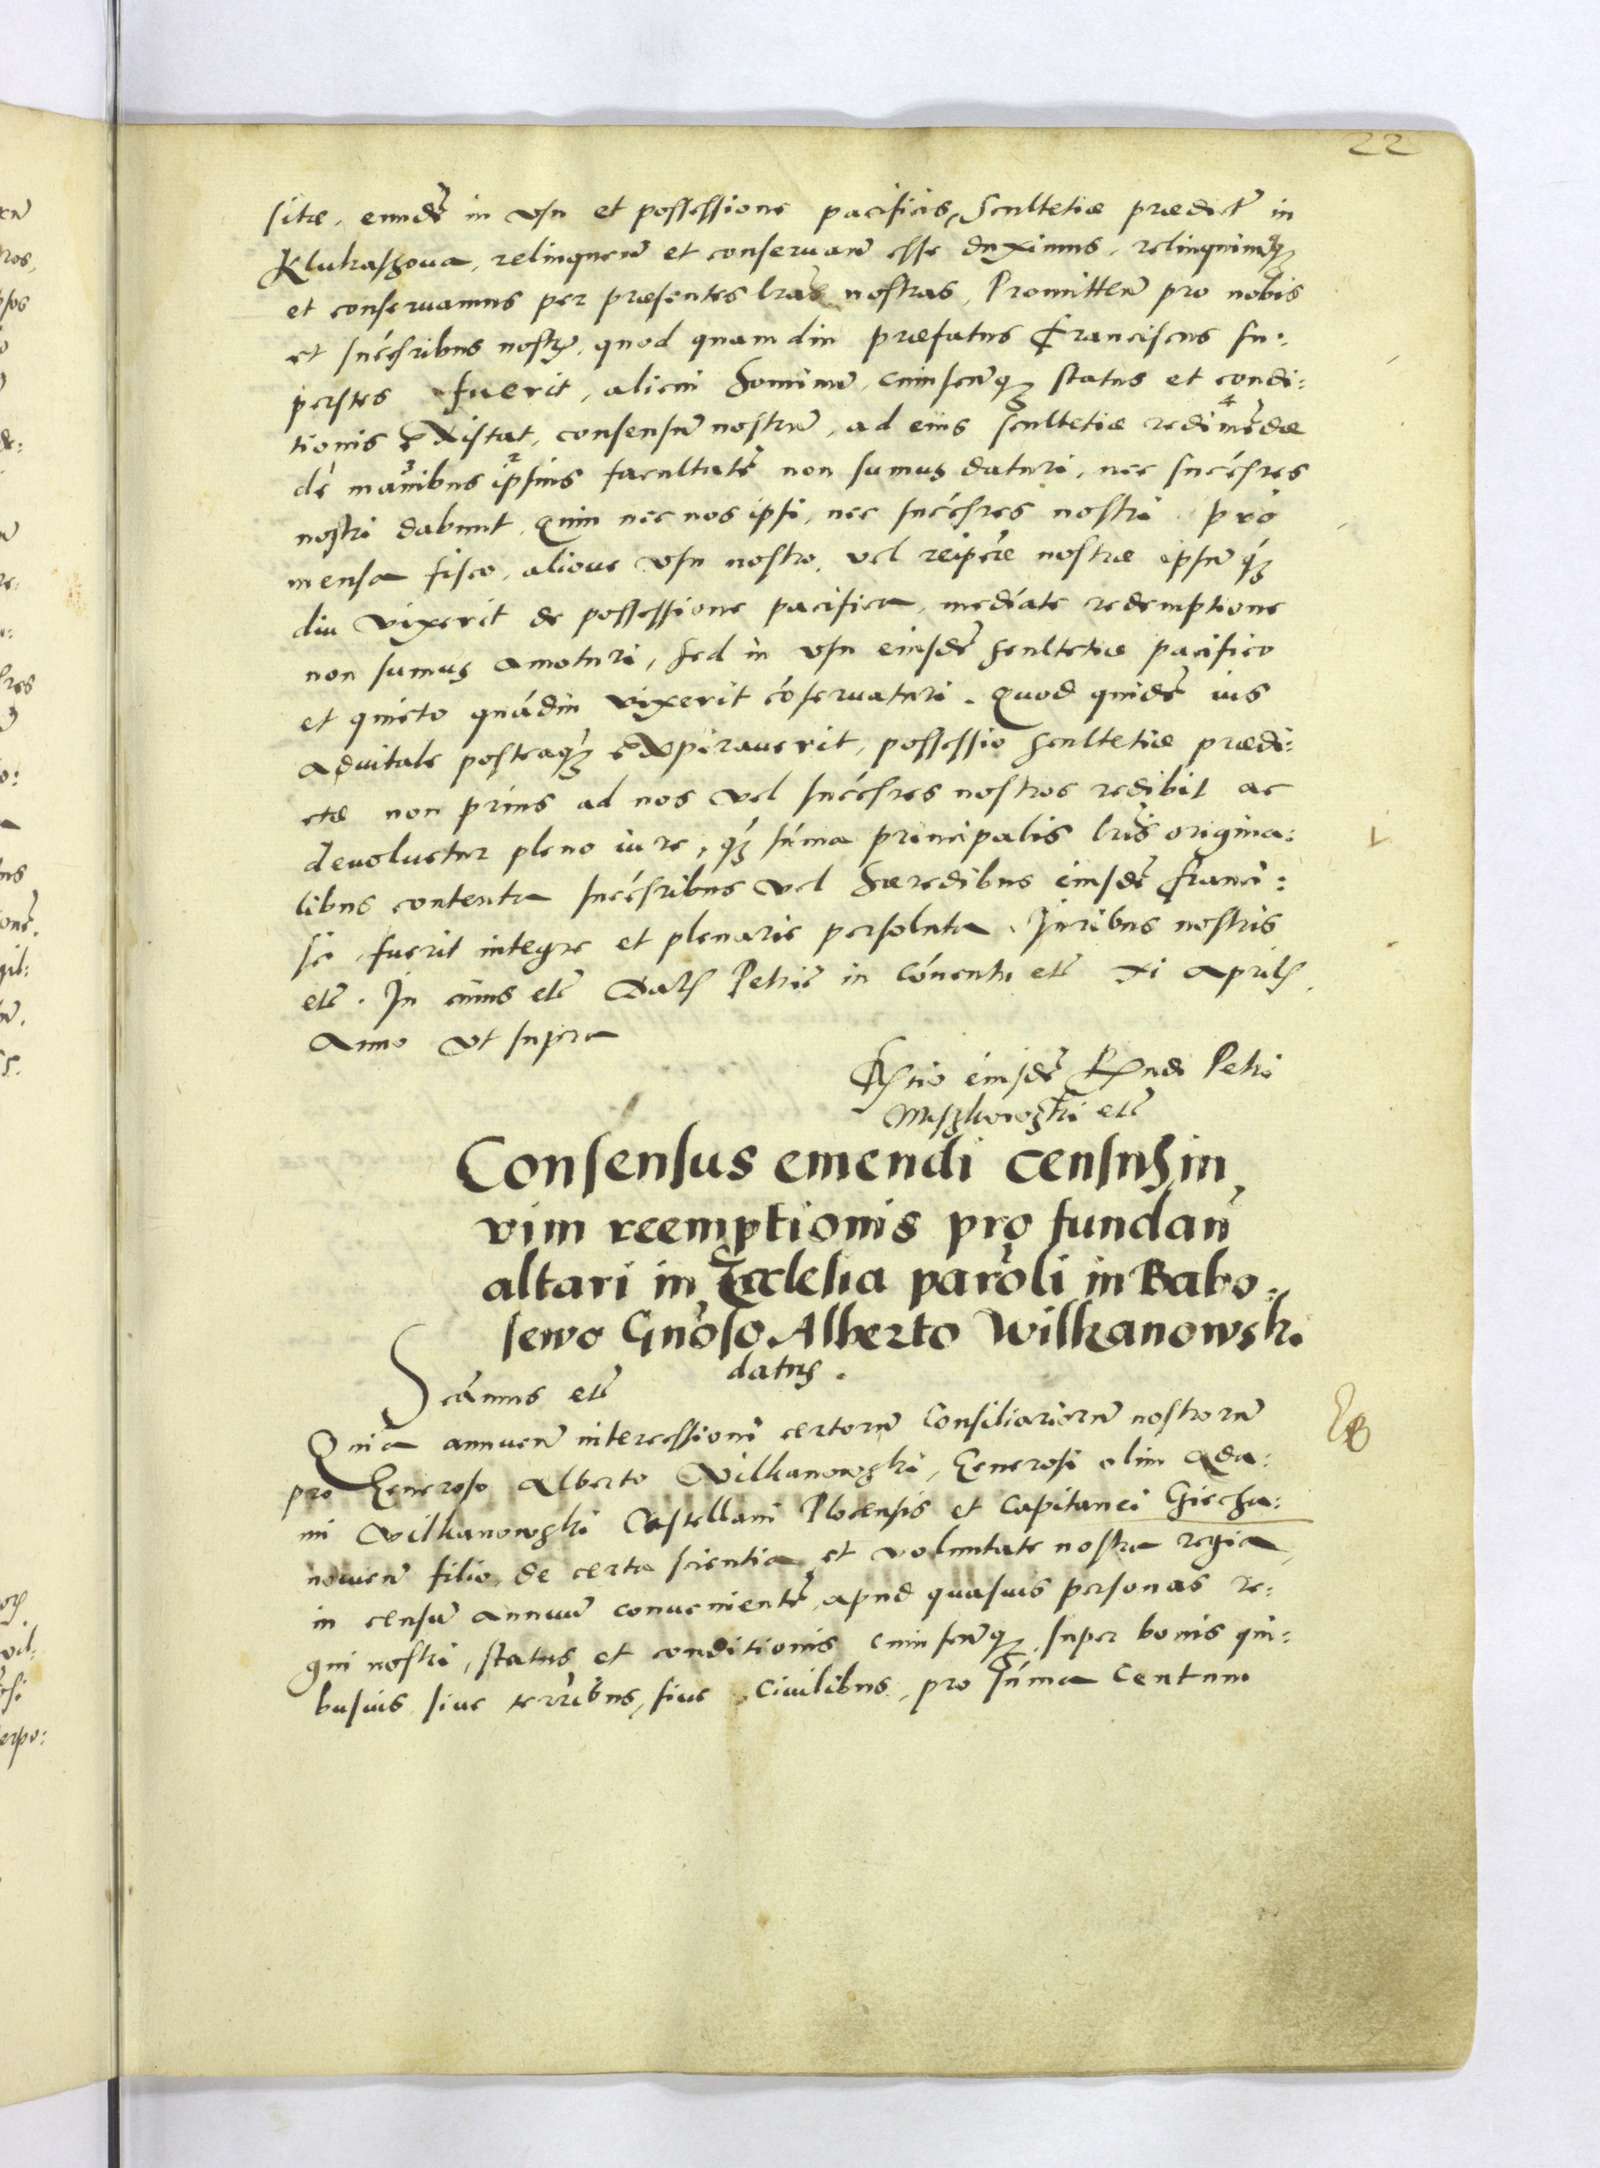 22
sitæ, eundē in vsu et possessione pacificis, scultetiæ prædict in
Klukaszoua, relinquen̄ et conseruan̄ esse duximus, relinquimusq3
et conseruamus per præsentes lrās nostras, Promitten̄ pro nobis
et succēsribus nostris, quod quamdiu præfatus Franciscus su:
perstes fuerit, alicui hominū, cuiuscunq3 status et condi:
tionis existat, consensū nostrū, ad eius scultetiæ redimēdæ
de manibus ipsius facultatē non sumus daturi, nec succēsres
nostri dabunt. Quin nec nos ipsi, nec succēsres nostri pro
mensa fisco, alioue vsu nostro, vel reipcæ nostræ ipsū q3
diu vixerit de possessione pacifica, mediate redemptione
non sumus amoturi, sed in vsu eiusdē scultetiæ pacifico
et quieto quādiu vixerit cōseruaturi. Quod quidē ius
aduitale posteaq3 expirauerit, possessio scultetiæ prædi:
ctæ non prius ad nos vel succēsres nostros redibit ac
deuoluetur pleno iure, q3 sūma principalis lrīs origina:
libus contenta succēsribus vel hæredibus eiusdē Franci:
sci fuerit integre et plenarie persoluta. Iuribus nostris
etc̄. In cuius etc̄ Dat Petric̄ in Cōuentu etc̄ xi Aprilis
Anno vt supra
Rtio eiusdē Rndi Petri
Miszkowski etc̄
Consensus emendi census in
vim reemptionis pro fundan̄
altari in Ecclesia paroli in Babo:
sewo Gnoso Alberto Wilkanowski
datus.
Scāmus etc̄
Quia annuen̄ intercessioni certorū Consiliariorū nostrorū
pro Generoso Alberto Vilkanowski, Generosi olim Ada:
mi Vilkanowski Castellani Plocensis et Capitanei Ciecha:
nouien̄ filio, de certa scientia et voluntate nostra regia,
in censū annuū conuenientē, apud quasuis personas re:
gni nostri, status et conditionis cuiuscunq3, super bonis qui:
busuis siue terrribus, siue Ciuilibus, pro sūma Centum